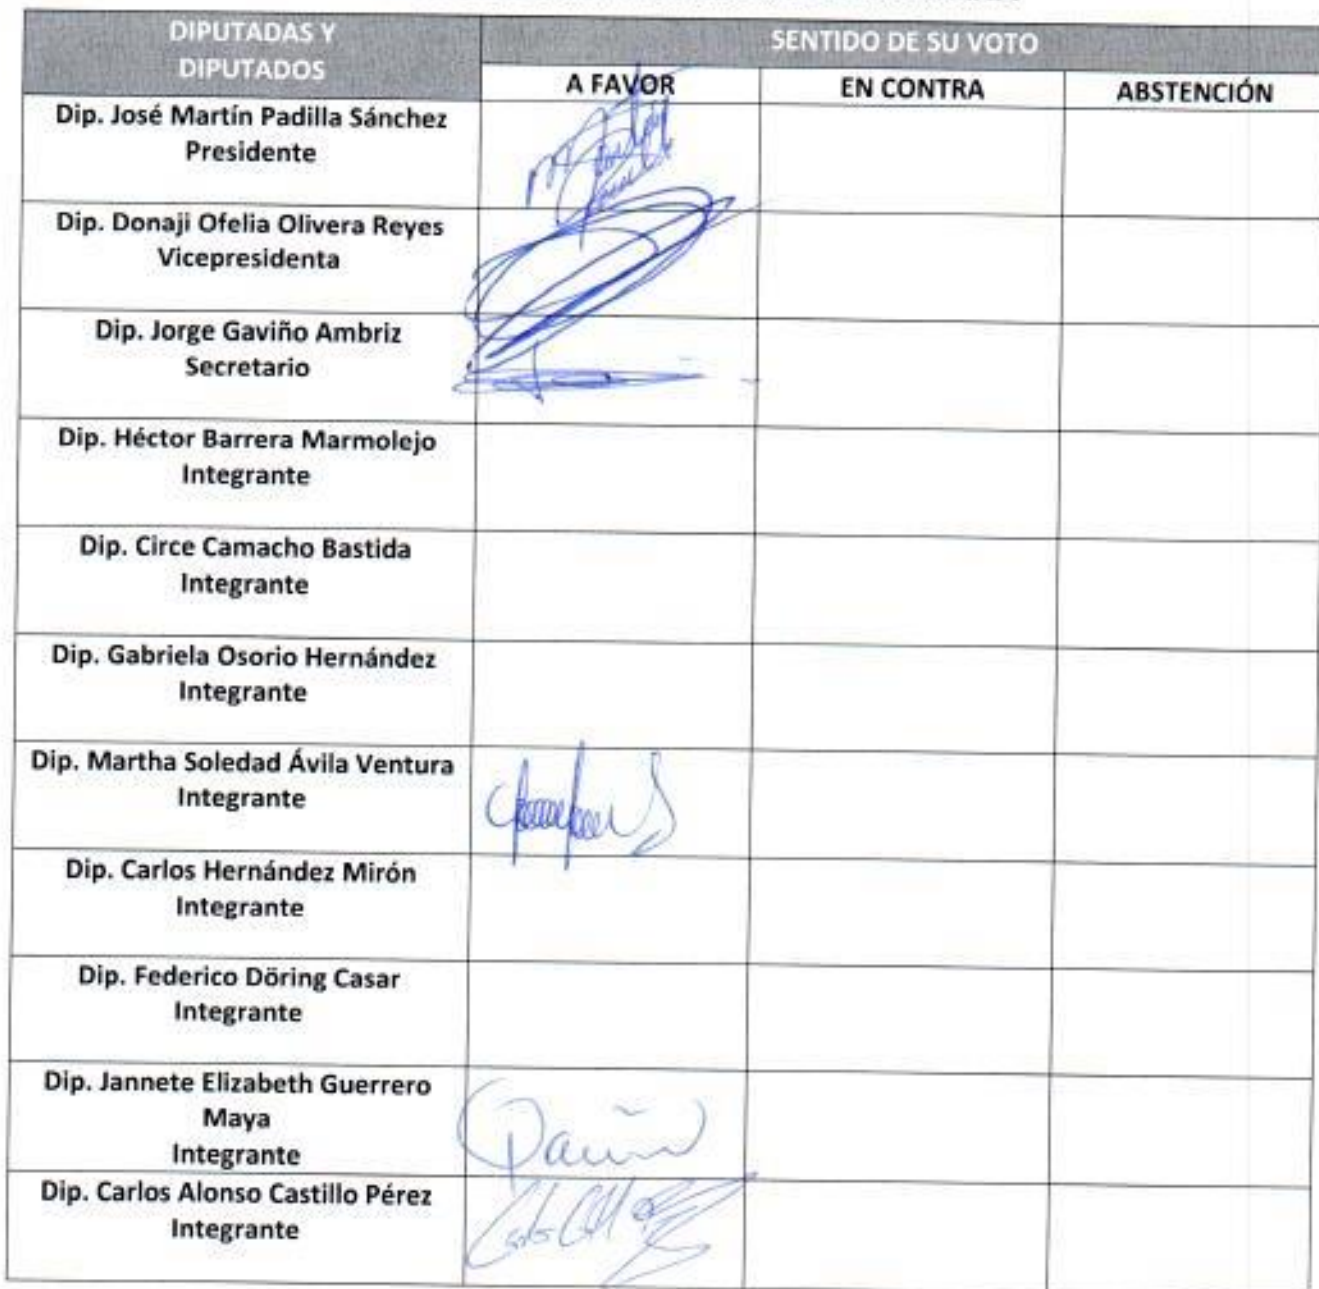 DIPUTADAS Y
DIPUTADOS
SENTIDO DE SU VOTO
A FAVOR
EN CONTRA
ABSTENCIÓN
Dip. José Martín Padilla Sánchez
Presidente
Dip. Donaji Ofelia Olivera Reyes
Vicepresidenta
Dip. Jorge Gaviño Ambriz
Secretario
Dip. Héctor Barrera Marmolejo
Integrante
Dip. Circe Camacho Bastida
Integrante
Dip. Gabriela Osorio Hernández
Integrante
Dip. Martha Soledad Ávila Ventura
Integrante
Dip. Carlos Hernández Mirón
Integrante
Dip. Federico Döring Casar
Integrante
Dip. Jannete Elizabeth Guerrero
Maya
Integrante
Dip. Carlos Alonso Castillo Pérez
Integrante